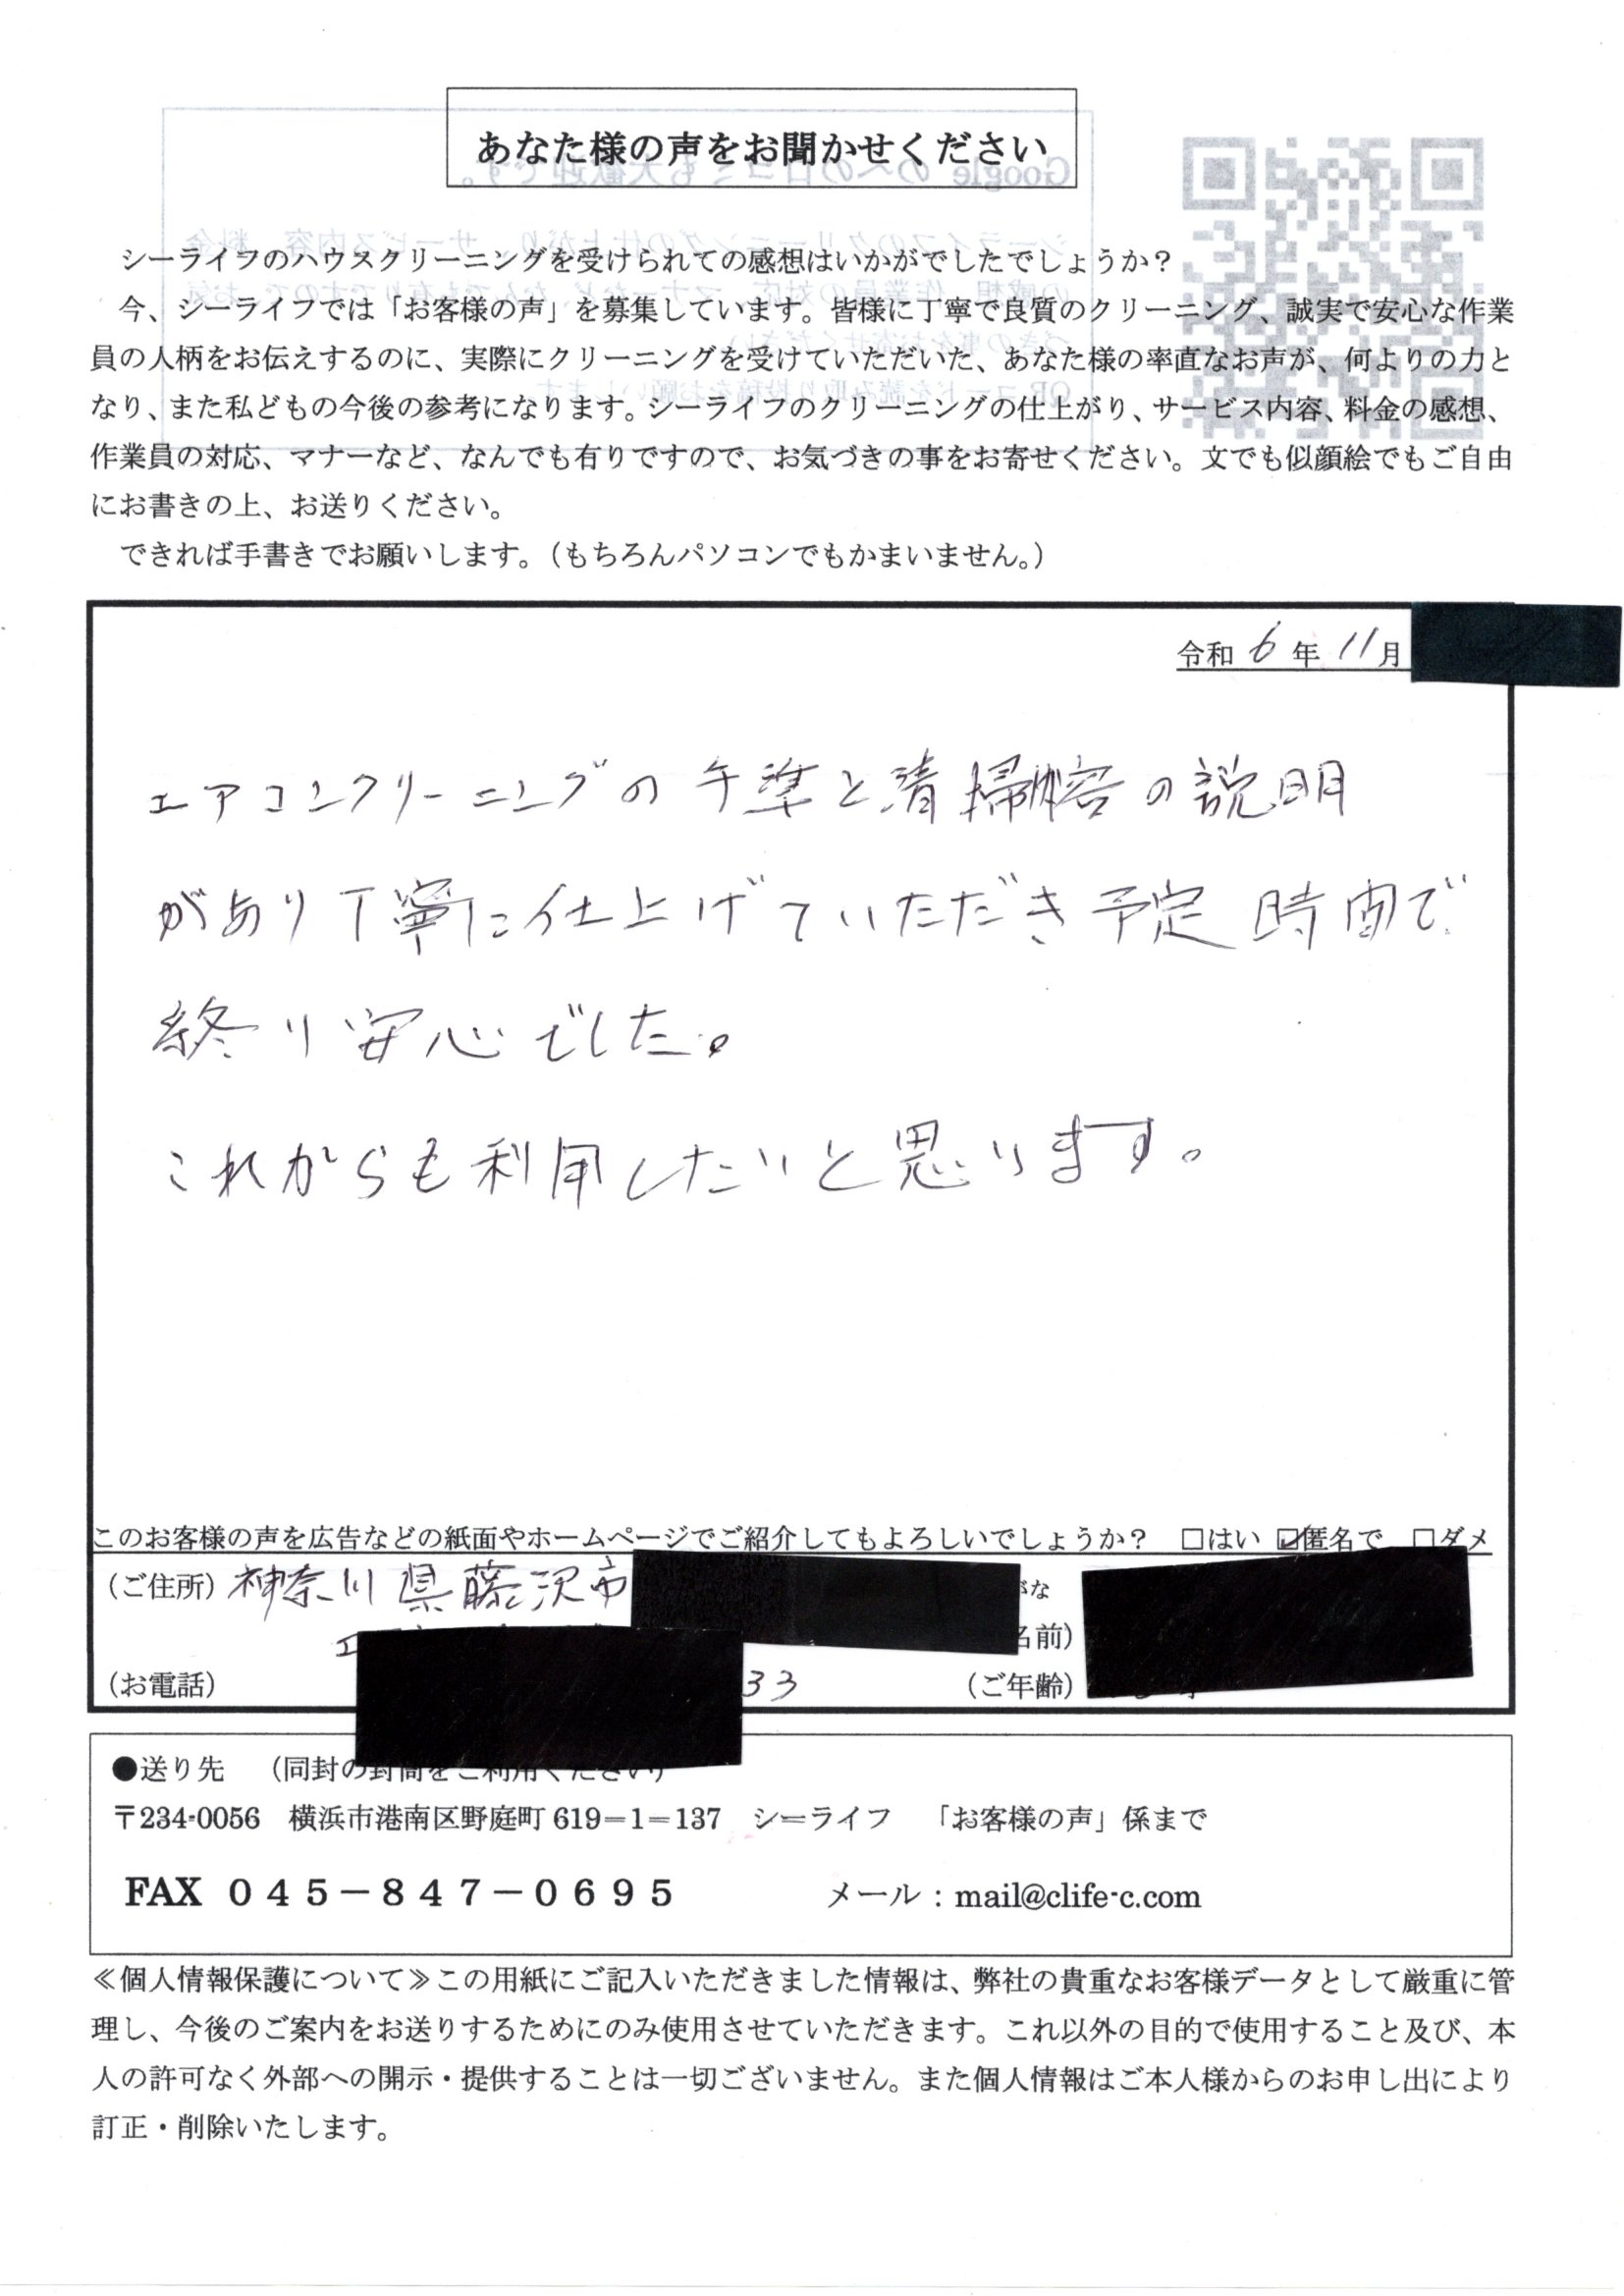 あなた様の声をお聞かせください
シーライフのハウスクリーニングを受けられての感想はいかがでしたでしょうか?
今、シーライフでは「お客様の声」を募集しています。皆様に丁寧で良質のクリーニング、誠実で安心な作業
員の人柄をお伝えするのに、実際にクリーニングを受けていただいた、あなた様の率直なお声が、何よりの力と
なり、また私どもの今後の参考になります。シーライフのクリーニングの仕上がり、サービス内容、料金の感想、
作業員の対応、マナーなど、なんでも有りですので、お気づきの事をお寄せください。文でも似顔絵でもご自由
にお書きの上、お送りください。
できれば手書きでお願いします。(もちろんパソコンでもかまいません。)
令和 6 年 11 月
エアコンクリーニングの手準と清掃内容の説明
があり丁寧に仕上げていただき予定時間で
終り安心でした。
これからも利用したいと思います。
このお客様の声を広告などの紙面やホームページでご紹介してもよろしいでしょうか? □はい ☑匿名で □ダメ
(ご住所) 神奈川県藤沢市
がな
名前)
(お電話) 33 (ご年齢)
●送り先 (同封の封筒をご利用ください)
〒234-0056 横浜市港南区野庭町 619-1-137 シーライフ 「お客様の声」係まで
FAX 045-847-0695 メール:mail@clife-c.com
≪個人情報保護について≫この用紙にご記入いただきました情報は、弊社の貴重なお客様データとして厳重に管
理し、今後のご案内をお送りするためにのみ使用させていただきます。これ以外の目的で使用すること及び、本
人の許可なく外部への開示・提供することは一切ございません。また個人情報はご本人様からのお申し出により
訂正・削除いたします。